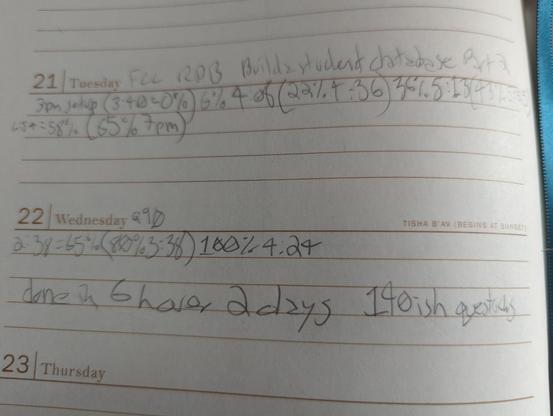 21 Tuesday FCC RDB Build a student database Part 2
3pm setup (3:40=0%) 6% 4:06 (22% 4:36) 36% 5:13
= 58% (65% 7pm)
22 Wednesday
TISHA B'AV (BEGINS AT SUNSET)
2:38=65% (80% 3:38) 100% 4:24
done in 6 hours 2 days 140ish questions
23 Thursday